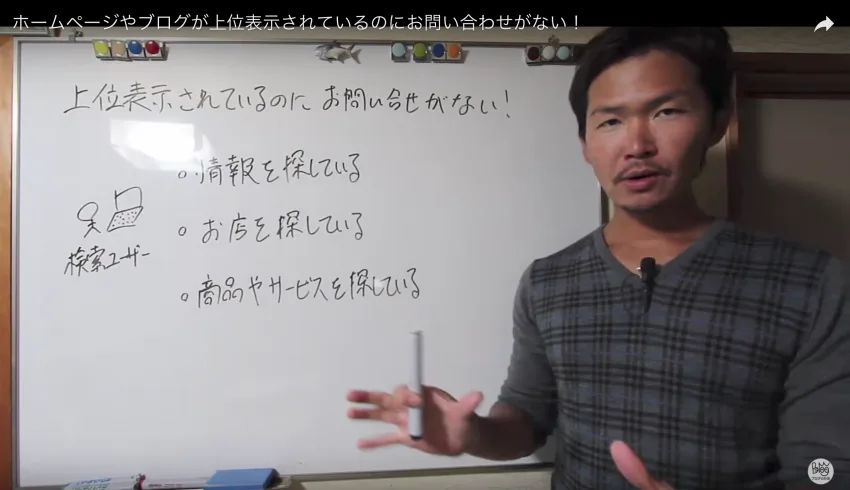 ホームページやブログが上位表示されているのにお問い合わせがない！
上位表示されているのに お問い合せがない！
情報を探している
お店を探している
検索ユーザー
商品やサービスを探している
Blog